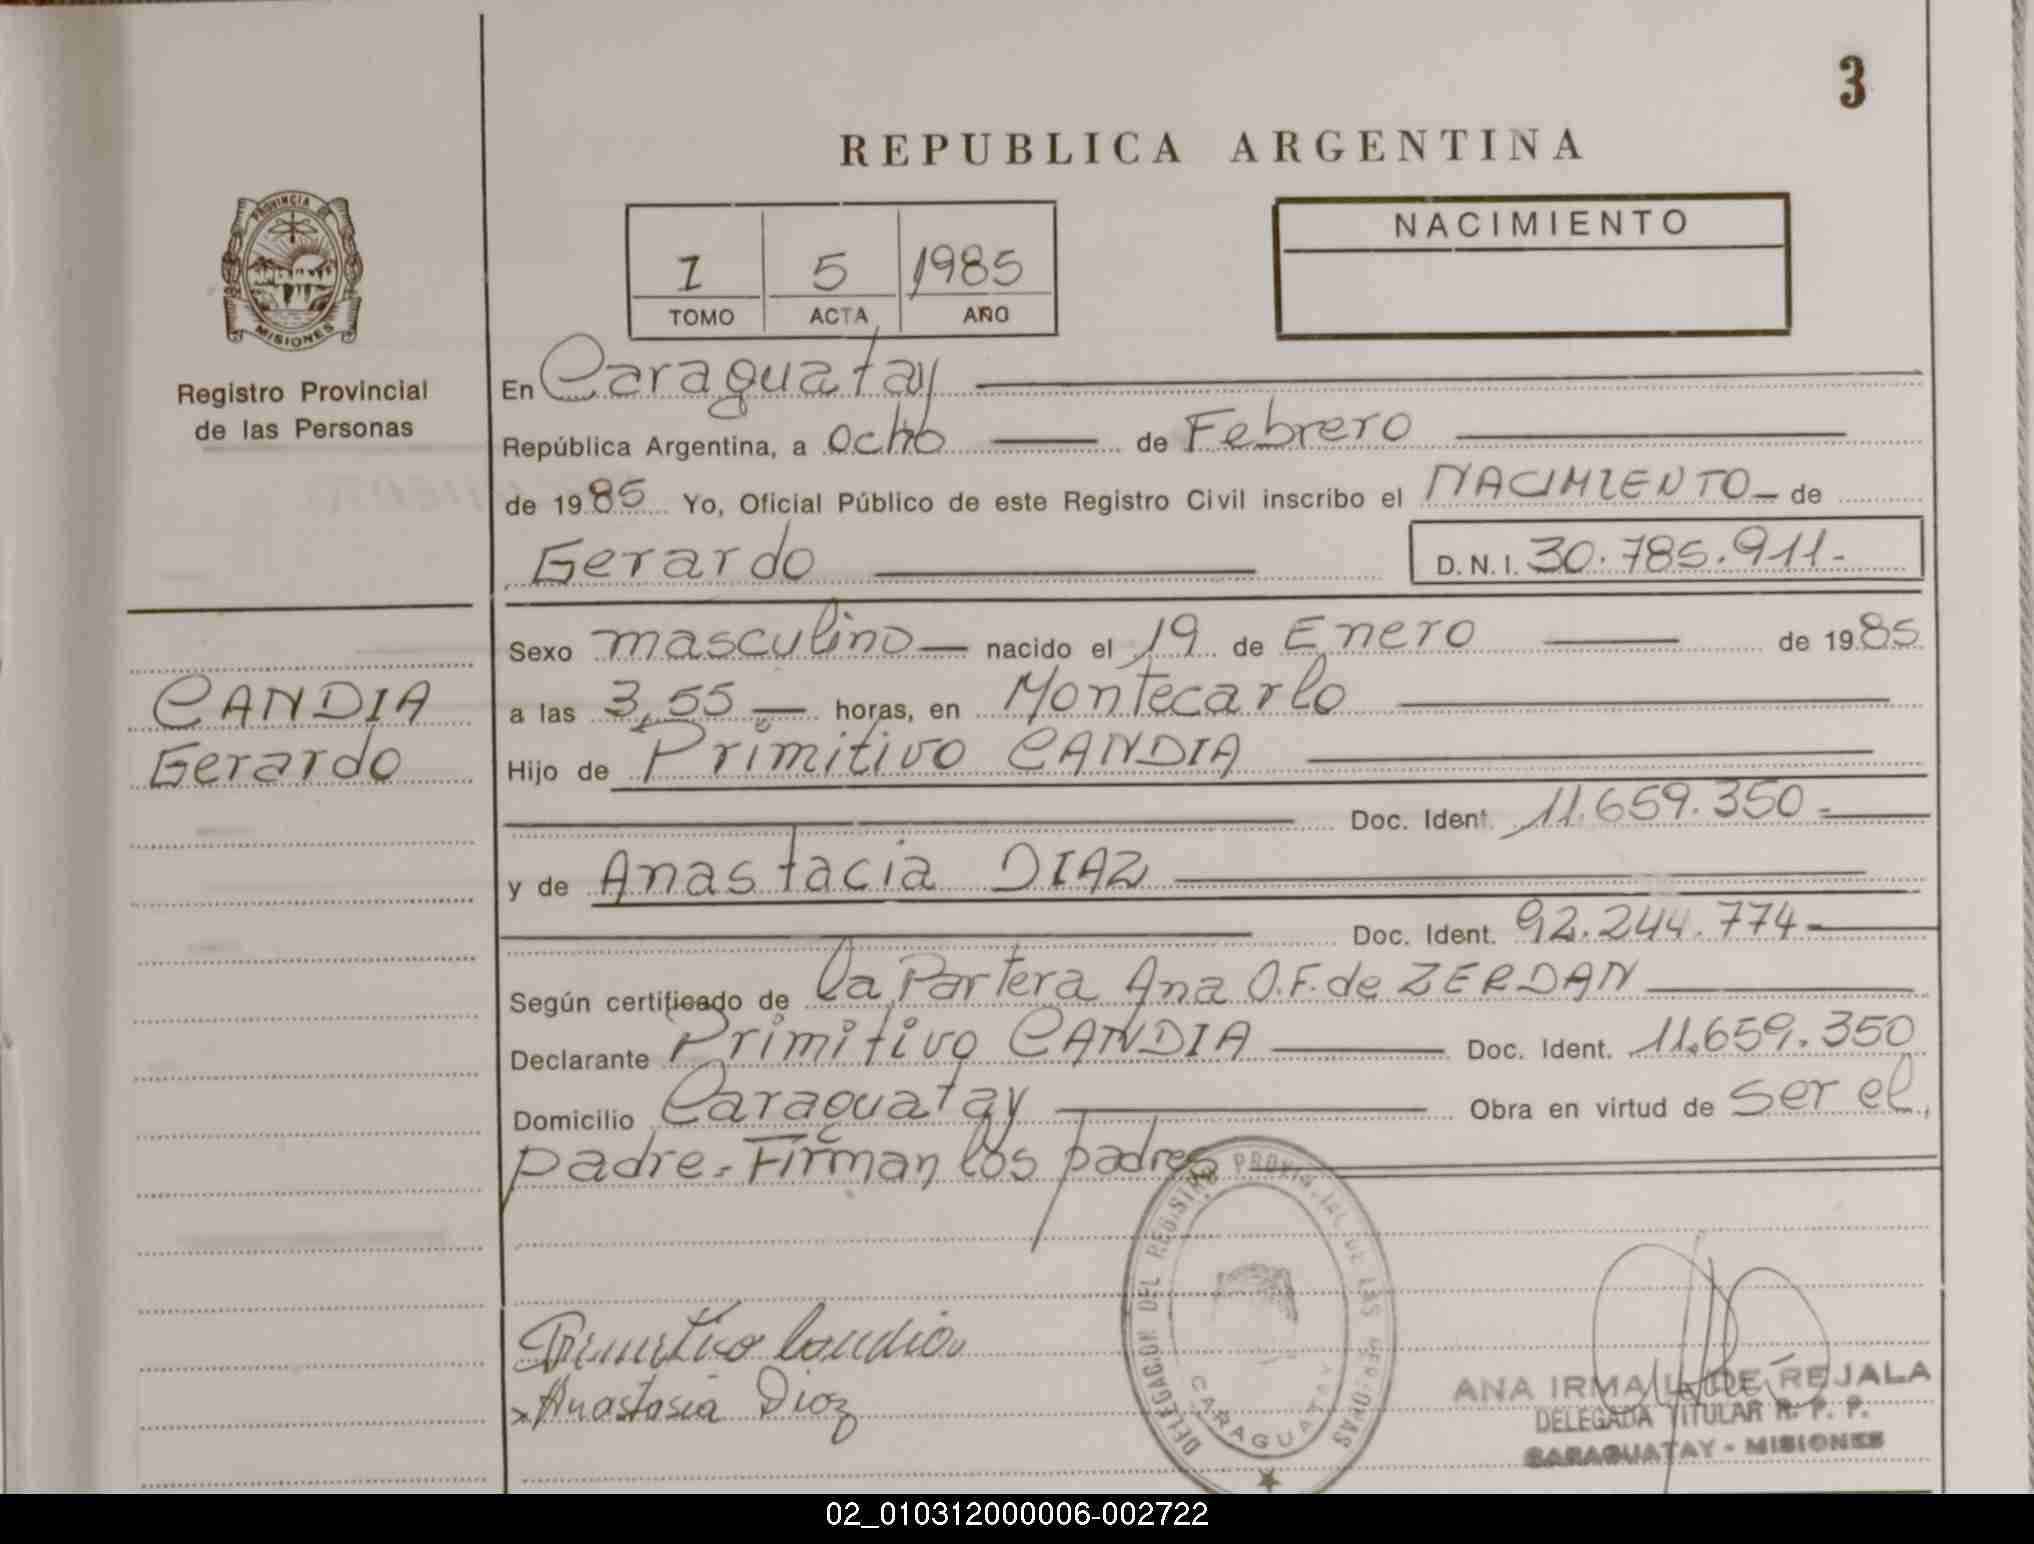 3
REPUBLICA ARGENTINA
PROVINCIA DE
MISIONES
Registro Provincial
de las Personas
I 5 1985
TOMO ACTA AÑO
NACIMIENTO
En Caraguatay
República Argentina, a ocho de Febrero
de 1985 Yo, Oficial Público de este Registro Civil inscribo el NACIMIENTO de
Gerardo D.N.I. 30.785.911.-
Sexo masculino nacido el 19 de Enero de 1985
CANDIA
Gerardo
a las 3,55 horas, en Montecarlo
Hijo de Primitivo CANDIA
Doc. Ident. 11.659.350
y de Anastacia DIAZ
Doc. Ident. 92.244.774
Según certificado de la Partera Ana O.F. de ZERDAN
Declarante Primitivo CANDIA Doc. Ident. 11.659.350
Domicilio Caraguatay Obra en virtud de ser el
padre.- Firman los padres
DELEGACION DEL REGISTRO PROVINCIAL DE LAS PERSONAS
CARAGUATAY
Primitivo Candia
Anastasia Diaz
ANA IRMA DE REJALA
DELEGADA TITULAR R. P. P.
CARAGUATAY - MISIONES
02_010312000006-002722